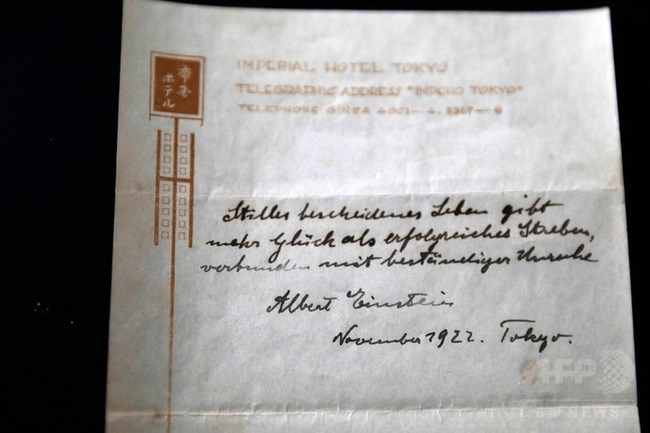 帝国
ホテル
IMPERIAL HOTEL TOKYO
TELEGRAPHIC ADDRESS "IMPEHO TOKYO"
TELEPHONE GINZA
Stilles bescheidenes Leben gibt
mehr Glück als erfolgreiches Streben,
verbunden mit beständiger Unruhe
Albert Einstein
November 1922. Tokyo.
AFP
BB NEWS